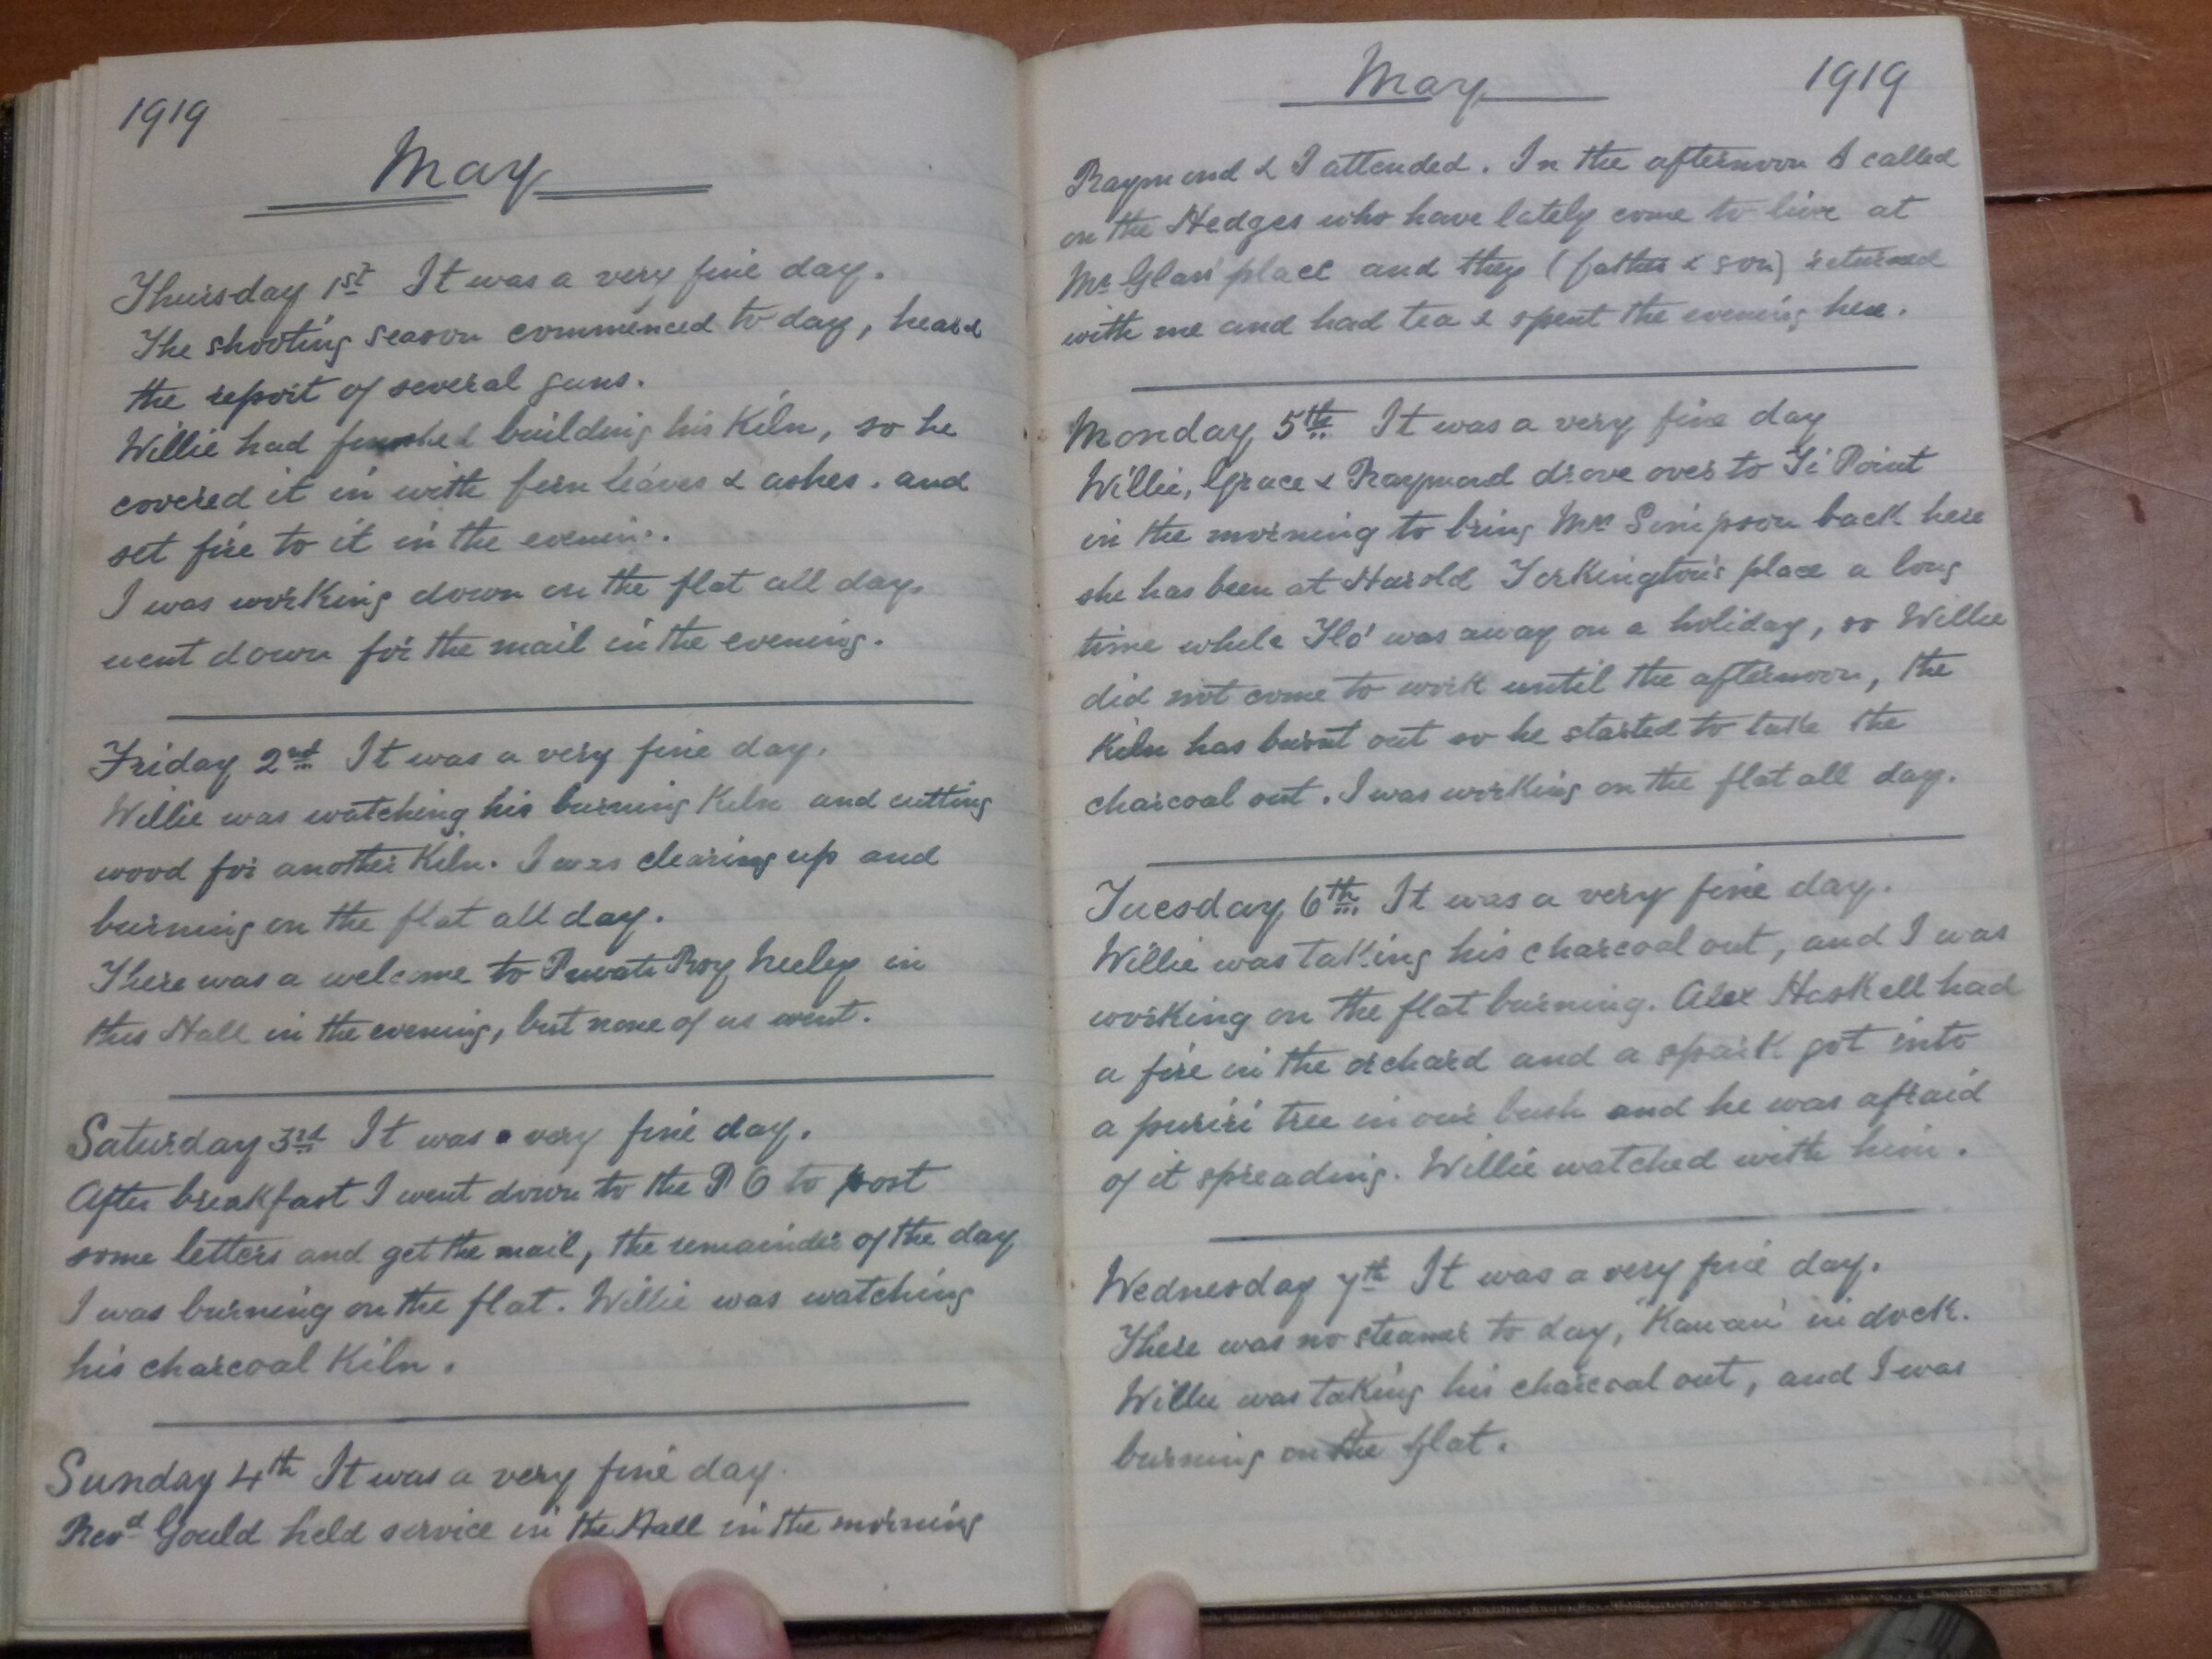 1919
May
Thursday 1st It was a very fine day.
The shooting season commenced to day, heard
the report of several guns.
Willie had finished building his Kiln, so he
covered it in with fern leaves & ashes. and
set fire to it in the evening.
I was working down on the flat all day.
went down for the mail in the evening.
Friday 2nd It was a very fine day.
Willie was watching his burning Kiln and cutting
wood for another Kiln. I was clearing up and
burning on the flat all day.
There was a welcome to Private Roy Neeley in
the Hall in the evening, but none of us went.
Saturday 3rd It was a very fine day.
After breakfast I went down to the P O to post
some letters and get the mail, the remainder of the day
I was burning on the flat. Willie was watching
his charcoal Kiln.
Sunday 4th It was a very fine day.
Revd Gould held service in the Hall in the morning
May 1919
Raymond & I attended. In the afternoon I called
on the Hedges who have lately come to live at
Mr Glass' place and they (father & son) returned
with me and had tea & spent the evening here.
Monday 5th It was a very fine day
Willie, Grace & Raymond drove over to Ti Point
in the morning to bring Mrs Simpson back here
she has been at Harold Torkington's place a long
time while 'Flo' was away on a holiday, so Willie
did not come to work until the afternoon, the
Kiln has burnt out so he started to take the
charcoal out. I was working on the flat all day.
Tuesday 6th It was a very fine day.
Willie was taking his charcoal out, and I was
working on the flat burning. Alex Haskell had
a fire in the orchard and a spark got into
a puriri tree in our bush and he was afraid
of it spreading. Willie watched with him.
Wednesday 7th It was a very fine day.
There was no steamer to day, 'Kawau' in dock.
Willie was taking his charcoal out, and I was
burning on the flat.